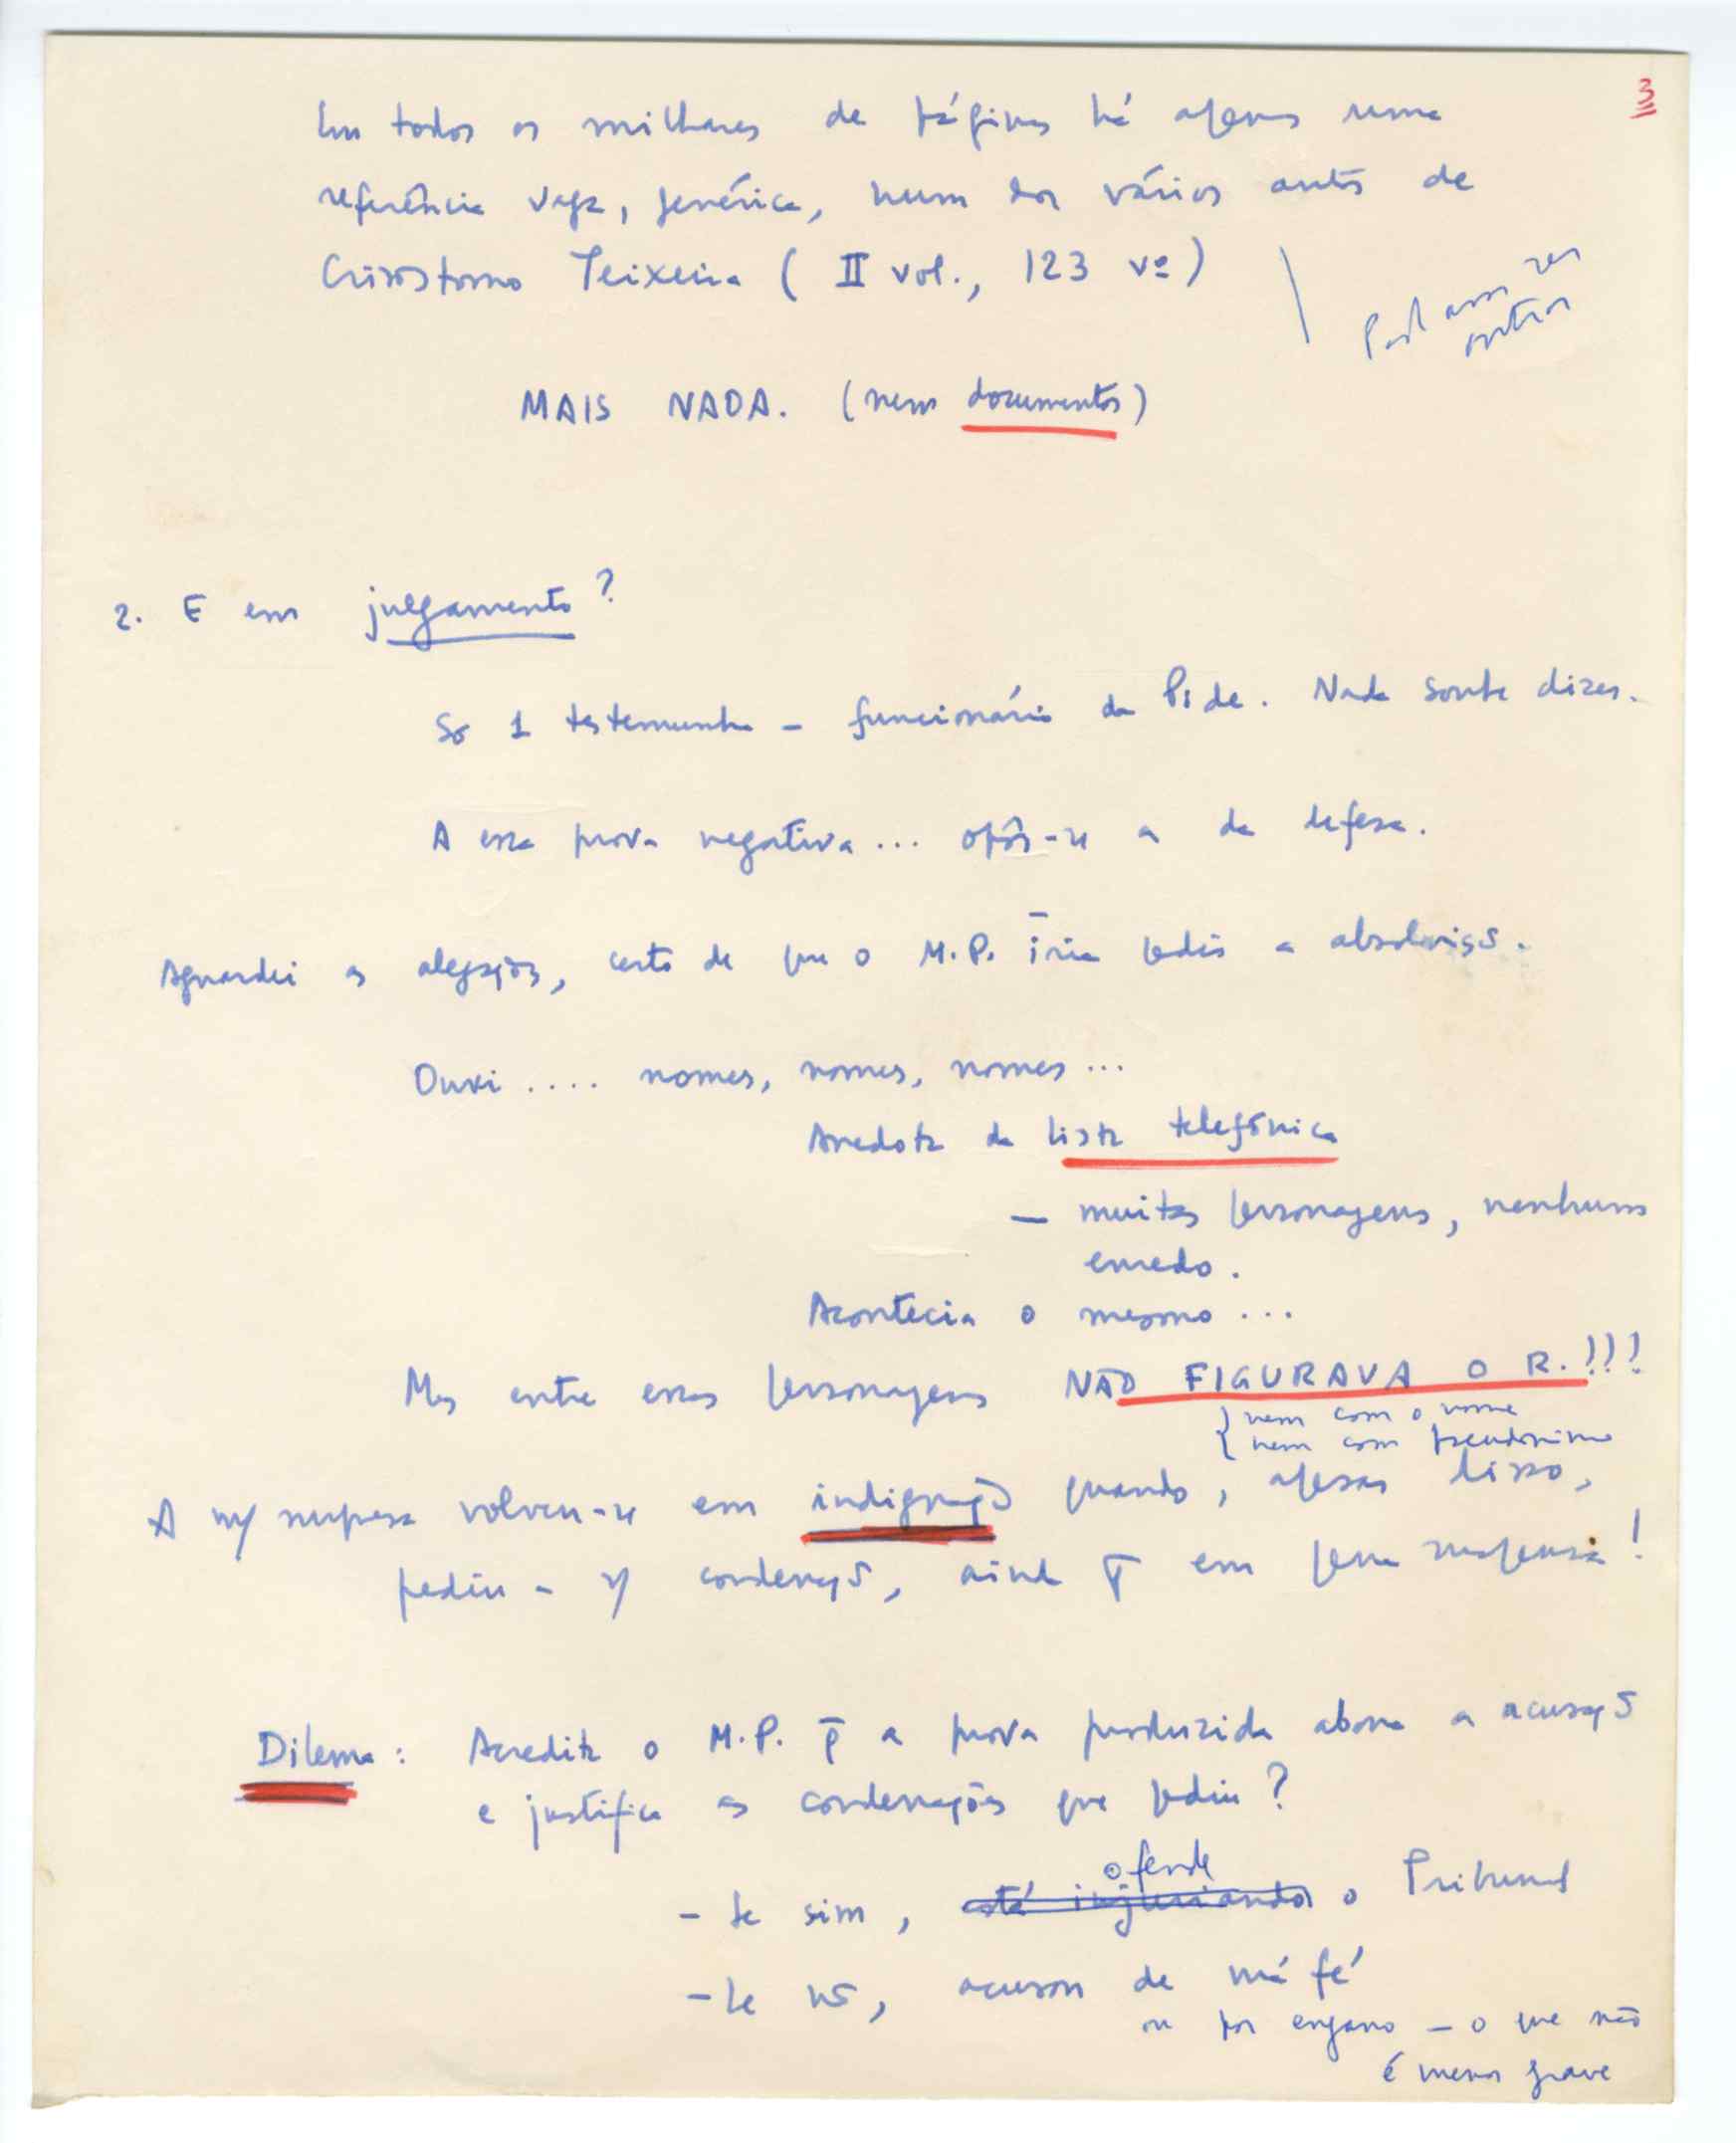 3
Em todos os milhares de páginas há apenas uma
referência vaga, genérica, num dos vários autos de
Crisóstomo Teixeira ( II vol., 123 vº)
MAIS NADA. (nem documentos)
2. E em julgamento?
Só 1 testemunha - funcionário da Pide. Nada soube dizer.
A essa prova negativa... opôs-se a da defesa.
Aguardei as alegações, certo de que o M.P. iria pedir a absolviçõ.
Ouvi .... nomes, nomes, nomes ...
Anedota da lista telefónica
- muitas personagens, nenhum
enredo.
Acontecia o mesmo ...
Mas entre essas personagens NÃO FIGURAVA O R.!!!
{ nem com o nome
{ nem com pseudónimo
A m/ surpresa volveu-se em indignaçõ quando, apesar disso,
pediu a s/ condenaçõ, ainda q̄ em pena suspensa!
Dilema: Acredita o M.P. q̄ a prova produzida abona a acusaçõ
e justifica as condenações que pediu?
ofende
- Se sim, está injuriando o Tribunal
- Se nõ, acusou de má fé
ou por engano - o que não
é menos grave